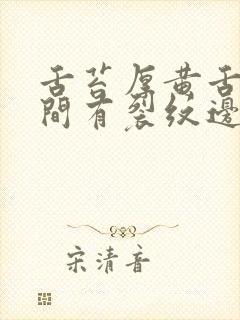 舌苔厚黄舌
间有裂纹边
宋清音